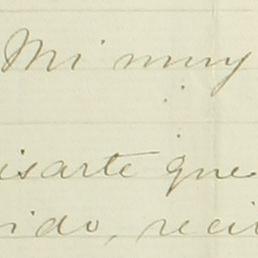 Mi muy
isarte que
ido, reci